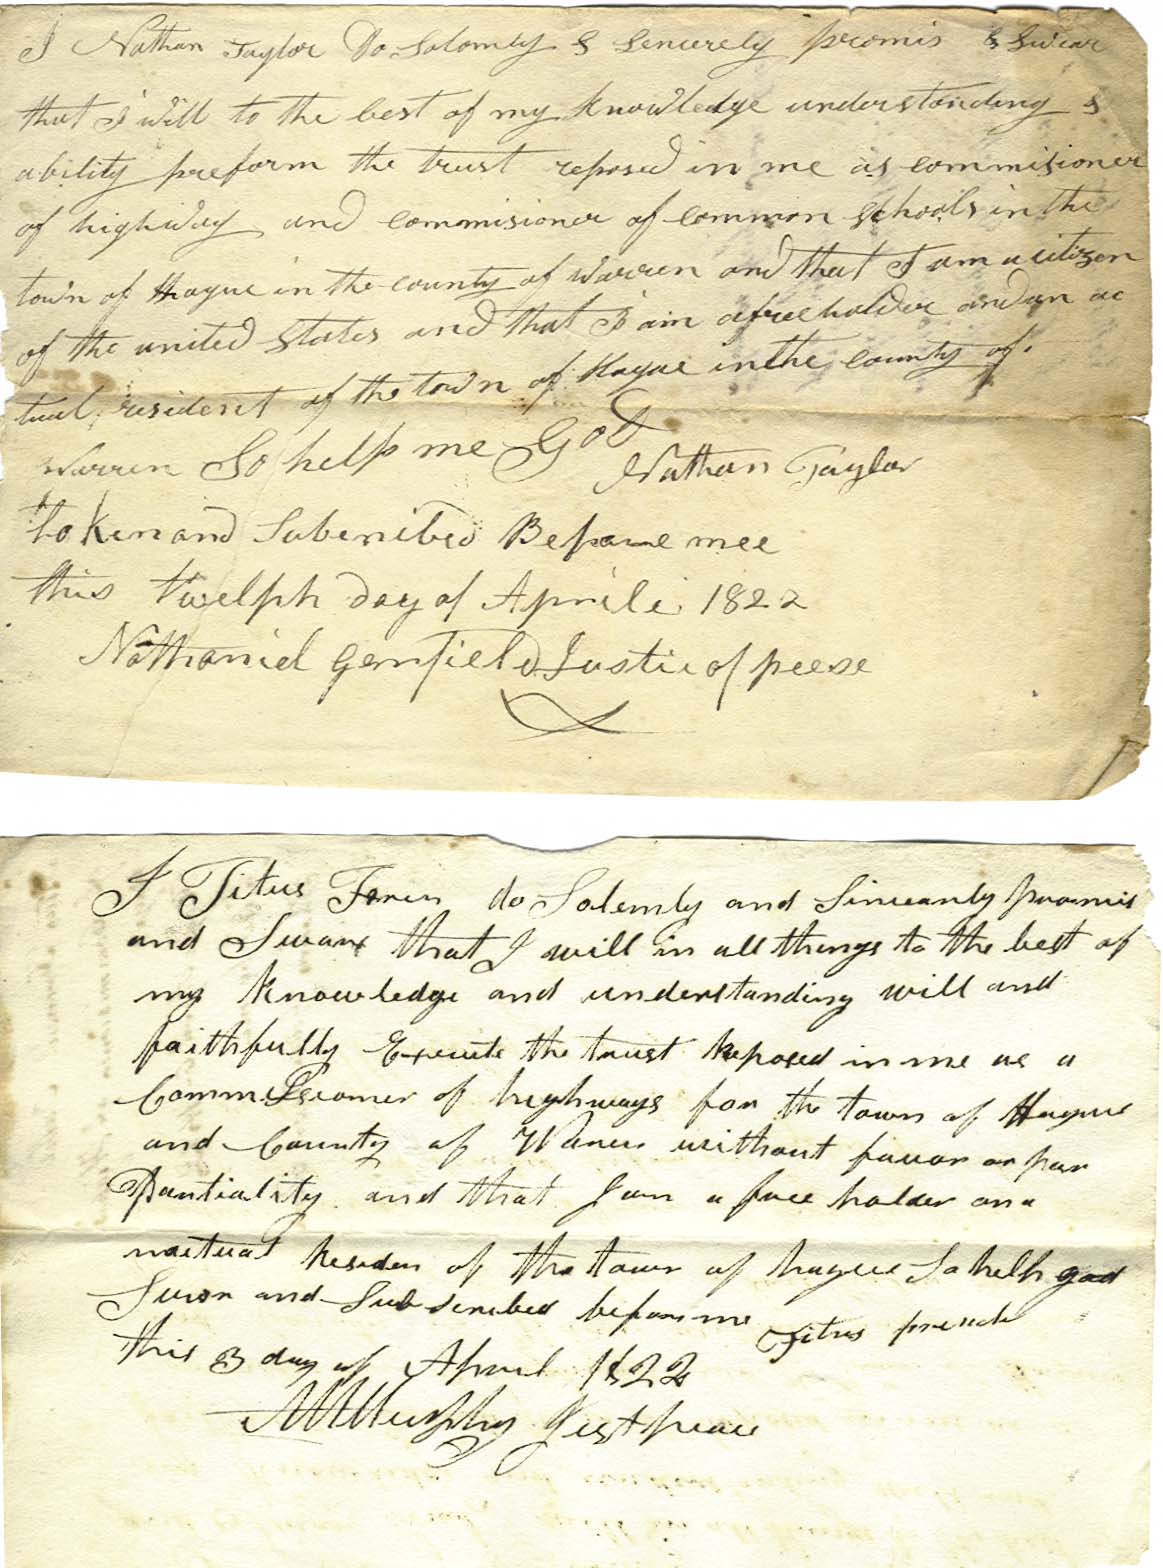 I Nathan Taylor Do Solomly & Sencurely promis & Swear
that I will to the best of my knowledge understanding &
ability preform the trust reposed in me as commisioner
of highway and commisioner of common schools in the
town of Hague in the county of Warren and that I am a citizen
of the united States and that I am a freeholder and an ac
tual resident of the town of Hague in the county of
Warren So help me God
Nathan Taylor
token and Subcribed Before mee
this twelph day of Aprile 1822
Nathaniel Garfield Justic of peese
I Titus do Solemly and Sincearly promis
and Swear that I will in all things to the best of
my knowledge and understanding will and
faithfully Execute the trust Reposed in me as a
Commissioner of highways for the town of Hague
and County of Waren without favor or par
Partiality and that I am a free holder and a
nactual Residen of the town of hague So help god
Sworn and Subscribed before me
Titus french
this 3 day of April 1822
Murphy Just peace